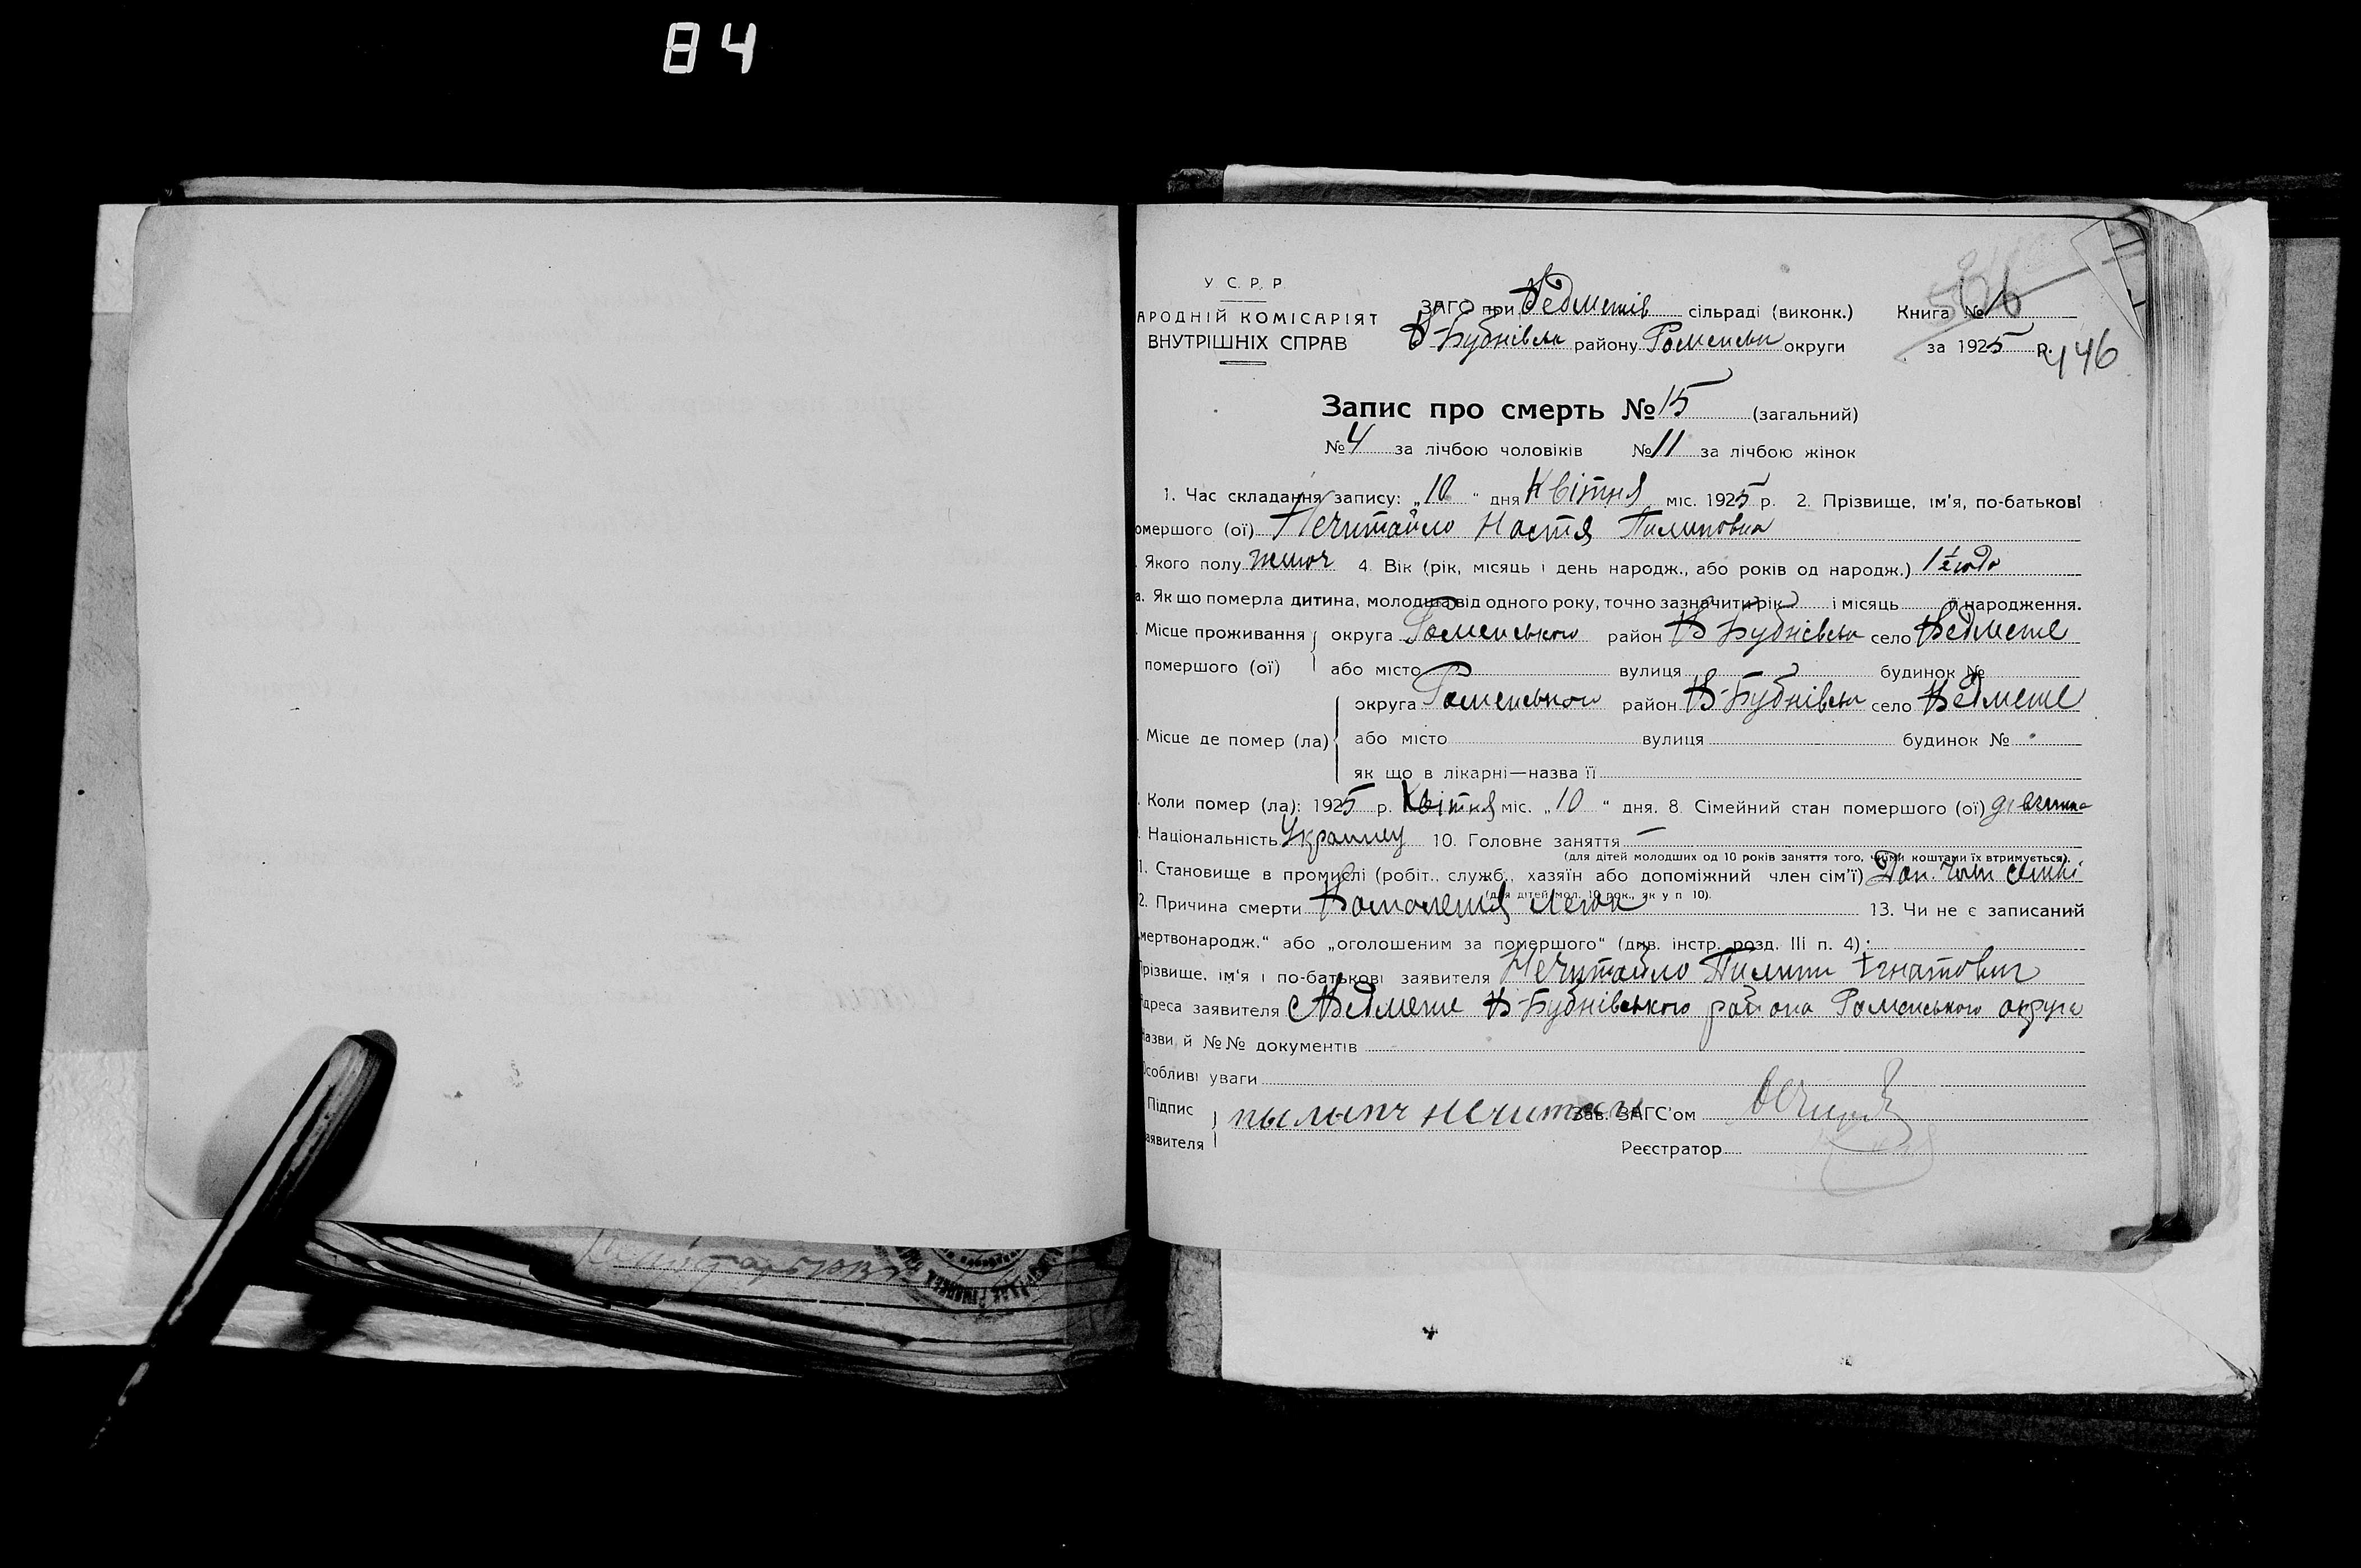 84
У С. Р. Р.
АРОДНІЙ КОМІСАРІЯТ
ВНУТРІШНІХ СПРАВ
ЗАГС при Ведметів сільраді (виконк.)
В-Бубнівськ району Роменськ округи
Книга № 6
за 1925 р.
446
Запис про смерть № 15 (загальний)
№ 4 за лічбою чоловіків № 11 за лічбою жінок
1. Час складання запису: „10" дня Квітня міс. 1925 р. 2. Прізвище, ім'я, по-батькові
омершого (ої) Нечитайло Настя Пилиповна
Якого полу жіноч 4. Вік (рік, місяць і день народж., або років од народж.) 1½ года
а. Як що померла дитина, молодша від одного року, точно зазначити рік і місяць її народження.
Місце проживання округа Роменського район В Бубнівськ село Ведмеже
помершого (ої) або місто вулиця будинок №
округа Роменського район В-Бубнівськ село Ведмеже
Місце де помер (ла) або місто вулиця будинок №
як що в лікарні—назва її
Коли помер (ла): 1925 р. Квітня міс. „10" дня. 8. Сімейний стан помершого (ої) дівчина
Національність Украинец 10. Головне заняття —
(для дітей молодших од 10 років заняття того, чиїми коштами їх втримується).
1. Становище в промислі (робіт., служб., хазяїн або допоміжний член сім'ї) Доп. член сімьі
(для дітей мол. 10 рок., як у п 10).
2. Причина смерти Воспаление легок 13. Чи не є записаний
мертвонародж." або „оголошеним за помершого" (див. інстр. розд. III п. 4):
різвище, ім'я і по-батькові заявителя Нечитайло Пилип Ігнатович
дреса заявителя с Ведмеже В-Бубнівського району Роменського округа
азви й №№ документів
собливі уваги
Підпис
аявителя
пылипч
Зав. ЗАГС'ом
Реєстратор